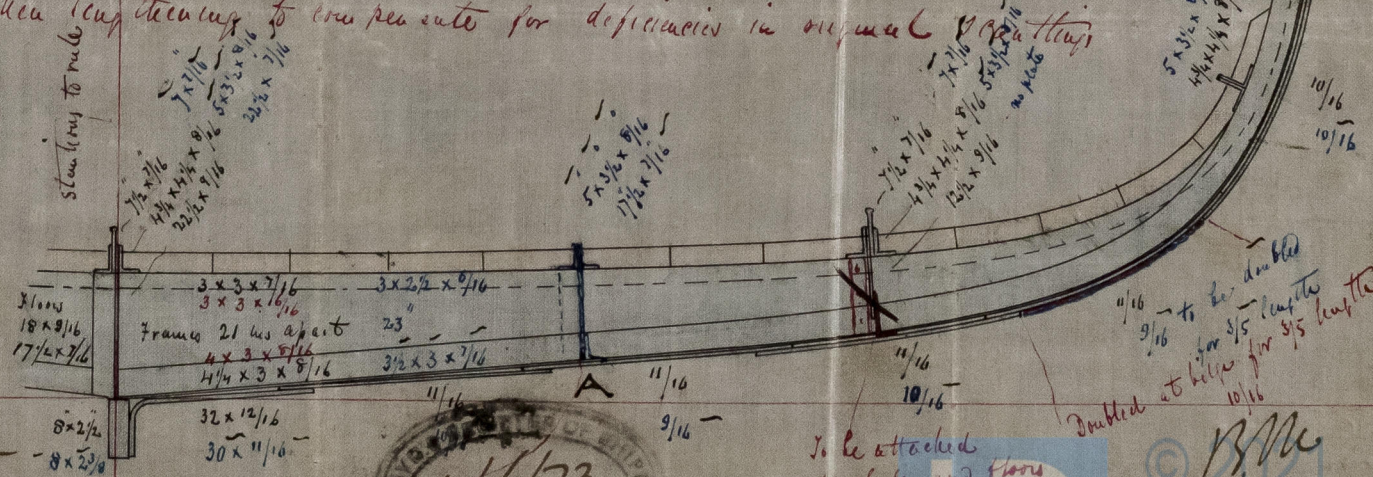 lengthening to compensate for deficiencies in original scantlings
stanchions to rule
7 x 7/16
5 x 3 1/2 x 8/16
22 1/2 x 7/16
7 1/2 x 7/16
4 3/4 x 4 1/4 x 8/16
22 1/2 x 9/16
5 x 3 1/2 x 8/16
17 1/2 x 7/16
7 x 7/16
5 x 3 1/2 x 7/16
no plate
7 1/2 x 7/16
4 3/4 x 4 1/4 x 8/16
12 1/2 x 9/16
10/16
10/16
Floors
18 x 9/16
17 1/2 x 7/16
3 x 3 x 7/16
3 x 3 x 6/16
3 x 2 1/2 x 6/16
Frames 21 ins apart
23"
4 x 3 x 8/16
4 1/4 x 3 x 8/16
3 1/2 x 3 x 7/16
A
8 x 2 1/2
8 x 2 3/8
32 x 12/16
30 x 11/16
11/16
11/16
9/16
11/16
10/16
11/16
9/16 to be doubled
for 3/5 length
Doubled at bilge for 3/5 length
10/16
To be attached
floors
© 2021